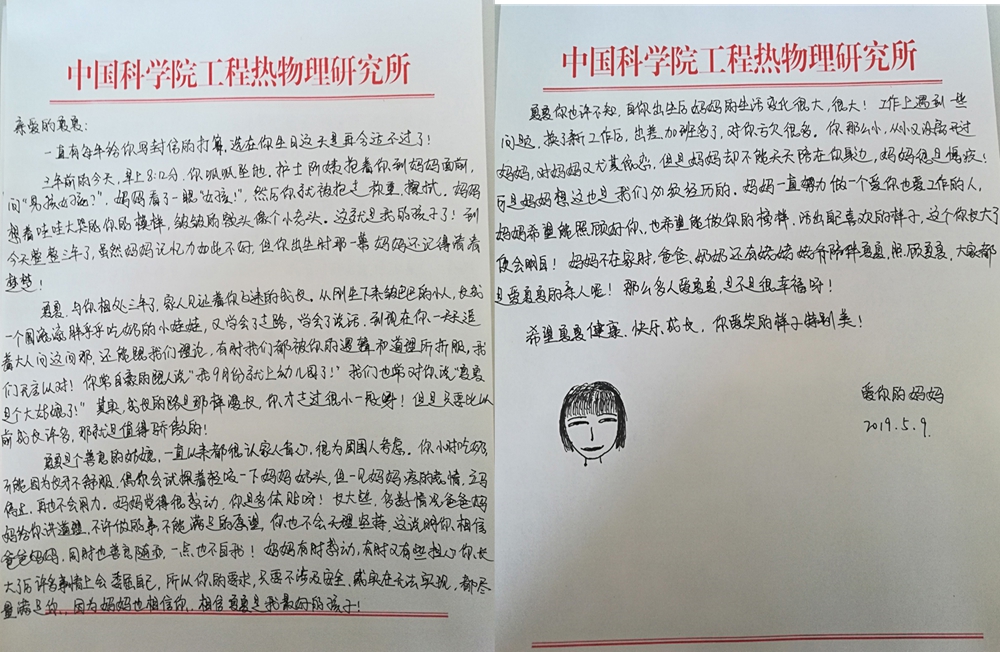 中国科学院工程热物理研究所
亲爱的夏夏:
一直有每年给你写封信的打算,选在你生日这天是再合适不过了!
三年前的今天,早上8:12分,你呱呱坠地,护士阿姨抱着你到妈妈面前,
问“男孩女孩?”,妈妈看了一眼“女孩!”,然后你就被抱走称重、擦拭。妈妈
想着哇哇大哭的你的模样,皱皱的额头像个小老头。这就是我的孩子了!到
今天整整三年了,虽然妈妈记忆力如此不好,但你出生时那一幕妈妈还记得清清
楚楚!
夏夏,与你相处三年了,家人见证着你飞速的成长。从刚生下来皱巴巴的小人,长成
一个圆滚滚胖乎乎吃奶的小娃娃,又学会了走路,学会了说话。到现在你一天天追
着大人问这问那,还能跟我们理论,有时我们都被你的逻辑和道理所折服,我
们无言以对!你常自豪的跟人说“我9月份就上幼儿园了!”我们也常对你说“夏夏
是个大姑娘了!”其实,成长的路是那样漫长,你才走过很小一段呀!但是只要比以
前成长许多,那就是值得骄傲的!
夏夏是个善良的姑娘,一直以来都很认家人省心,很为周围人考虑。你小时吃奶,
可能因为牙不舒服,偶尔会试探着轻咬一下妈妈奶头,但一见妈妈疼的表情,立马
停止,再也不会用力。妈妈觉得很感动,你是多体贴呀!长大些,多数情况爸爸妈
妈给你讲道理,不许做的事不能满足的愿望,你也不会无理坚持,这说明你相信
爸爸妈妈,同时也善良随和,一点也不自我!妈妈有时感动,有时又有些担心你长
大了后许多事情上会委屈自己,所以你的要求,只要不涉及安全,或实在无法实现,都尽
量满足你,因为妈妈也相信你,相信夏夏是我最好的孩子!
中国科学院工程热物理研究所
夏夏你也许不知,自你出生后妈妈的生活变化很大,很大!工作上遇到一些
问题,换了新工作后,出差加班多了,对你亏欠很多。你那么小,从小又没离开过
妈妈,对妈妈又尤其依恋,但是妈妈却不能天天陪在你身边,妈妈很是愧疚!
可是妈妈想这也是我们必须经历的。妈妈一直努力做一个爱你也爱工作的人,
妈妈希望能照顾好你,也希望能做你的榜样,活出自己喜欢的样子,这个你长大了
便会明白!妈妈不在家时,爸爸、奶奶还有姥姥姥爷陪伴夏夏,照顾夏夏,大家都
是爱夏夏的亲人呢!那么多人爱夏夏,是不是很幸福呀!
希望夏夏健康、快乐、成长,你爱笑的样子特别美!
爱你的妈妈
2019.5.9.